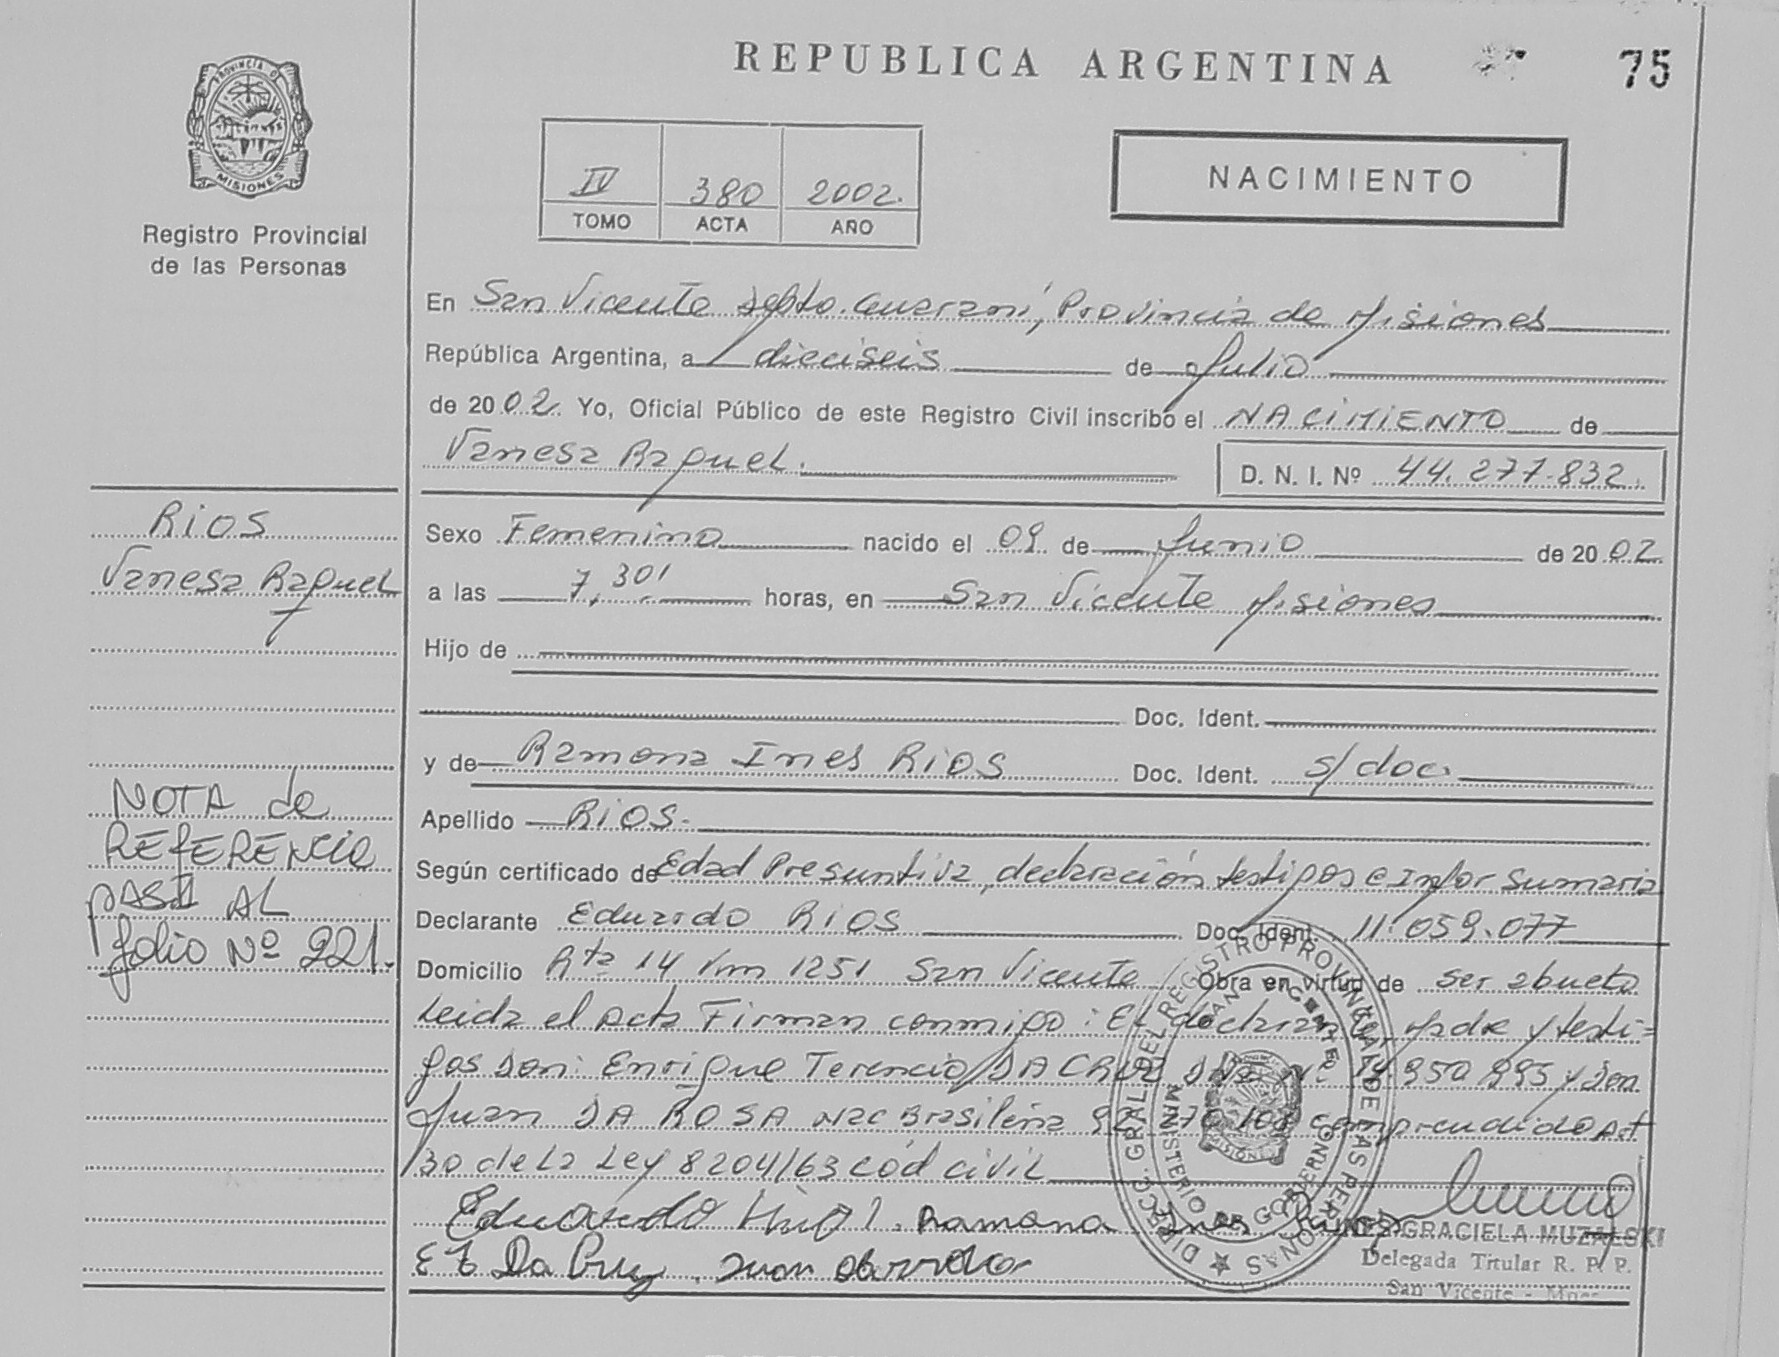 REPUBLICA ARGENTINA
75
PROVINCIA DE
MISIONES
Registro Provincial
de las Personas
IV 380 2002.
TOMO ACTA AÑO
NACIMIENTO
En San Vicente Depto. Guaraní, Provincia de Misiones
República Argentina, a dieciseis de Julio
de 2002. Yo, Oficial Público de este Registro Civil inscribo el NACIMIENTO de
Vanesa Raquel. D. N. I. Nº 44.277.832.
RIOS
Vanesa Raquel
Sexo Femenino nacido el 09 de Junio de 2002
a las 7,30' horas, en San Vicente Misiones
Hijo de
Doc. Ident.
y de Ramona Ines RIOS Doc. Ident. s/doc.
Apellido RIOS.
NOTA de
REFERENCIA
PASA AL
folio Nº 221.
Según certificado de Edad Presuntiva, declaración testigos e Infor Sumaria
Declarante Eduardo RIOS Doc. Ident. 11.059.077
Domicilio Rta 14 Km 1251 San Vicente Obra en virtud de ser abuelo
Leida el acta Firman conmigo: El declarante, Madre y testi=
gos son: Enrique Terencio DA CRUZ DNI Nº 14.950.995 y Don
Juan DA ROSA Nac Brasileña 92 270 comprendido Art
30 de la Ley 8204/63 cód civil
Eduardo Ramona Ines
E T Da Cruz Juan
DIRECC. GRAL. DEL REGISTRO PROVINCIAL DE LAS PERSONAS
SAN VICENTE
MINISTERIO DE GOBIERNO
MISIONES
INES GRACIELA MUZALSKI
Delegada Titular R. P. P.
San Vicente - Mnes